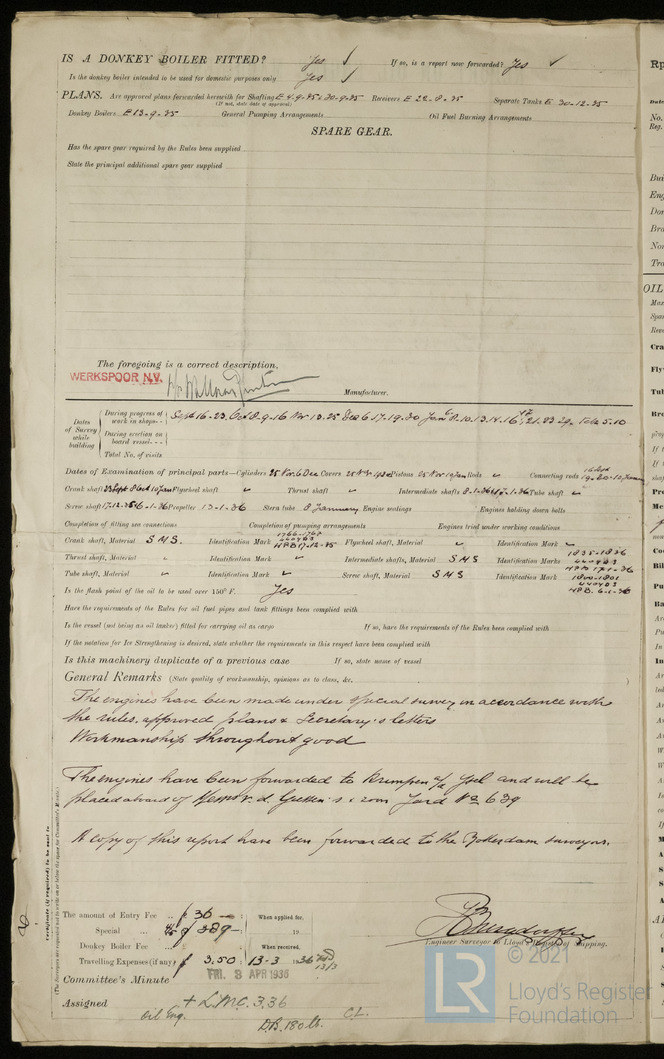 IS A DONKEY BOILER FITTED? Yes ✓ If so, is a report now forwarded? Yes ✓
Is the donkey boiler intended to be used for domestic purposes only Yes ✓
PLANS. Are approved plans forwarded herewith for Shafting E 4-9-35 - 30-9-35 Receivers E 22-8-35 Separate Tanks E 30-12-35
(If not, state date of approval)
Donkey Boilers E 13-9-35 General Pumping Arrangements Oil Fuel Burning Arrangements
SPARE GEAR.
Has the spare gear required by the Rules been supplied
State the principal additional spare gear supplied
The foregoing is a correct description,
WERKSPOOR N.V.
Manufacturer.
Dates of Survey while building
During progress of work in shops - - Sept 16-23 Oct 8-9-16 Nov 13-25 Dec 6-17-19-30 Jan 6-8-10-13-14-16-17-21-23-29 Feb 5-10
During erection on board vessel - - -
Total No. of visits
Dates of Examination of principal parts—Cylinders 25 Nov. 6 Dec Covers 25 Nov Pistons 25 Nov 10 Jan Rods ✓ Connecting rods
Crank shaft 23 Sept 8 Oct 10 Jan Flywheel shaft ✓ Thrust shaft ✓ Intermediate shafts 8-1-36 17-1-36 Tube shaft ✓
Screw shaft 17-12-35 6-1-36 Propeller 13-1-36 Stern tube 8 January Engine seatings Engines holding down bolts
Completion of fitting sea connections Completion of pumping arrangements Engines tried under working conditions
Crank shaft, Material S.M.S. Identification Mark 1766-1767 HPB 17-12-35 Flywheel shaft, Material ✓ Identification Mark ✓
Thrust shaft, Material ✓ Identification Mark ✓ Intermediate shafts, Material S M S Identification Marks 1835-1836 HPB 17-1-36
Tube shaft, Material ✓ Identification Mark ✓ Screw shaft, Material S M S Identification Mark 1800-1801 HPB. 6-1-36
Is the flash point of the oil to be used over 150° F. Yes
Have the requirements of the Rules for oil fuel pipes and tank fittings been complied with
Is the vessel (not being an oil tanker) fitted for carrying oil as cargo If so, have the requirements of the Rules been complied with
If the notation for Ice Strengthening is desired, state whether the requirements in this respect have been complied with
Is this machinery duplicate of a previous case If so, state name of vessel
General Remarks (State quality of workmanship, opinions as to class, &c.
The engines have been made under special survey in accordance with
the rules, approved plans & Secretary's letters
Workmanship throughout good
The engines have been forwarded to Krimpen a/d Ysel and will be
placed aboard of Messrs v. d. Giessen's Yard No 639
A copy of this report have been forwarded to the Rotterdam surveyors.
Certificate (if required) to be sent to
The amount of Entry Fee .. ƒ 36 - : When applied for,
Special ... 4/5 ƒ 289 - : 19
Donkey Boiler Fee ... £ : When received,
Travelling Expenses (if any) ƒ 3.50 : 13-3 1936 13/3
Engineer Surveyor to Lloyd's Register of Shipping.
FRI. 3 APR 1936
Committee's Minute
Assigned + L.M.C. 3.36
Oil Eng. DB. 180 lb. C.L.
LR © 2021
Lloyd's Register
Foundation